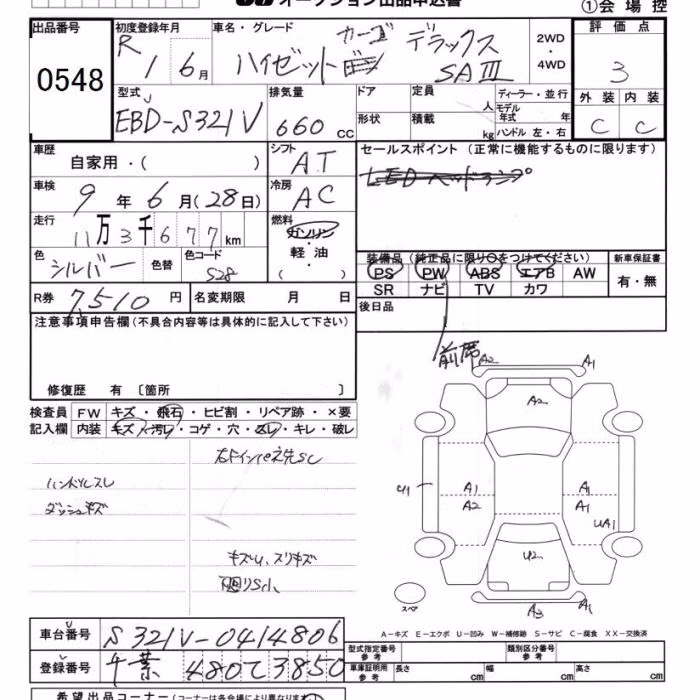 オークション出品申込書 ①会場控
出品番号 初度登録年月 車名・グレード 評価点
0548 R 1 6月 ハイゼット カーゴ デラックス SAⅢ 2WD ・ 4WD 3
型式 排気量 ドア 定員 人 ディーラー・並行 外装 内装
EBD-S321V 660cc 形状 積載 kg モデル年式 年 ハンドル 左・右 C C
車歴 自家用・( ) シフト AT セールスポイント (正常に機能するものに限ります)
車検 9年6月(28日) 冷房 AC LEDヘッドランプ
走行 11万3千677km 燃料 ガソリン ・ 軽油 ・ ( )
色 シルバー 色替 色コード S28
装備品 (純正品に限り○をつけてください) 新車保証書
PS PW ABS エアB AW 有・無
SR ナビ TV カワ
R券 7,510円 名変期限 月 日 後日品
注意事項申告欄(不具合内容等は具体的に記入して下さい)
前席
修復歴 有 〔箇所 〕
検査員 FW キズ・飛石・ヒビ割・リペア跡・×要
記入欄 内装 キズ・汚レ・コゲ・穴・スレ・キレ・破レ
右ドインパネ先SC
ハンドルスレ
ダッシュキズ
キズU、スリキズ
下廻りSH、
A2 A1
A2
A1 A1
U1 A2 A1
UA1
U2
A3 A1
スペア
A-キズ E-エクボ U-凹み W-補修跡 S-サビ C-腐食 XX-交換済
車台番号 S321V-0414806
登録番号 千葉 480 て 3850
型式指定番号 参考 類別区分番号 参考
車庫証明用 参考 長さ cm 幅 cm 高さ cm
希望出品コーナー(コーナーは各会場により異なりま